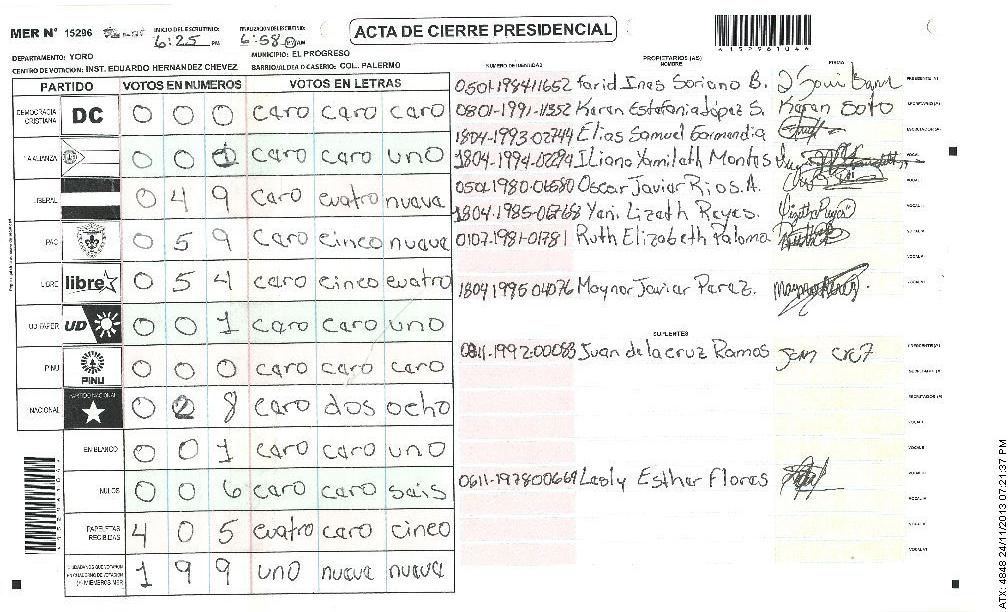 MER N° 15296
INICIO DEL ESCRUTINIO: 6:25 PM
FINALIZACION DEL ESCRUTINIO: 6:58 AM
ACTA DE CIERRE PRESIDENCIAL
DEPARTAMENTO: YORO
MUNICIPIO: EL PROGRESO
CENTRO DE VOTACION: INST. EDUARDO HERNANDEZ CHEVEZ
BARRIO/ALDEA O CASERIO: COL. PALERMO
PARTIDO VOTOS EN NUMEROS VOTOS EN LETRAS
DEMOCRACIA CRISTIANA DC 0 0 0 caro caro caro
LA ALIANZA 0 0 1 caro caro uno
LIBERAL 0 4 9 caro cuatro nueva
PAC 0 5 9 caro cinco nueva
LIBRE libre 0 5 4 caro cinco cuatro
UD FAPER UD 0 0 1 caro caro uno
PINU PINU 0 0 0 caro caro caro
NACIONAL PARTIDO NACIONAL 0 2 8 caro dos ocho
EN BLANCO 0 0 1 caro caro uno
NULOS 0 0 6 caro caro sais
PAPELETAS RECIBIDAS 4 0 5 cuatro caro cinco
CIUDADANOS QUE VOTARON EN CUADERNO DE VOTACION (+) MIEMBROS MER 1 9 9 uno nueva nueva
NUMERO DE IDENTIDAD PROPIETARIOS (AS) NOMBRE FIRMA
0501-198411652 farid Ines Soriano B. PRESIDENTE (A)
0801-1991-11352 Karen Estefania López S. Karen Soto SECRETARIO (A)
1804-1993-02744 Elias Samuel Garmendia ESCRUTADOR (A)
1804-1994-02294 Iliana Yamilath Montes VOCAL I
0501-1980-06580 Oscar Javier Rios.A.
1804-1985-01768 Yeni Lizeth Reyes.
0107-1981-01781 Ruth Elizabeth Paloma
1804 1995 04076 Maynor Javier Parez.
SUPLENTES
0811-1992-00083 Juan dela cruz Ramos
0611-197800669 Lesly Esther Flores
4152961044
ATX: 4848 24/11/2013 07:21:37 PM